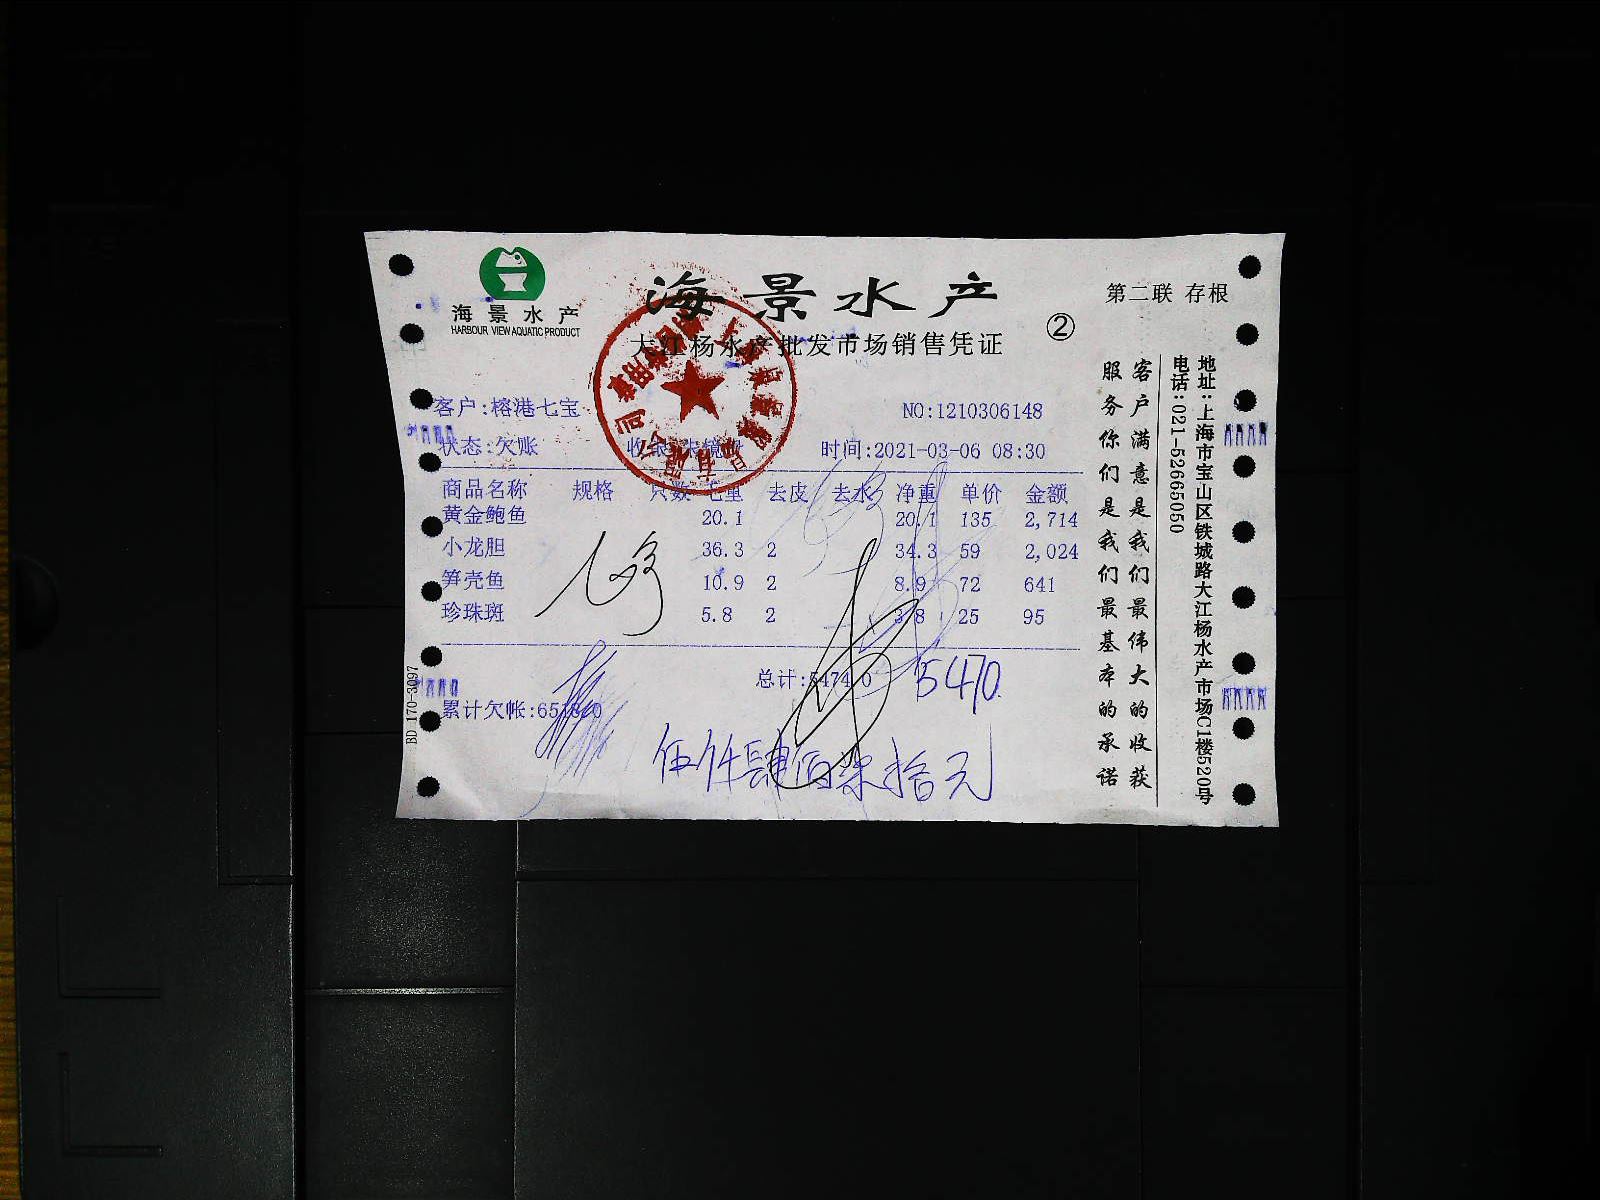 海景水产
HARBOUR VIEW AQUATIC PRODUCT
海景水产
大江杨水产批发市场销售凭证
②
第二联 存根
客户:榕港七宝
NO:1210306148
状态:欠账
时间:2021-03-06 08:30
商品名称 规格 只数 毛重 去皮 去水 净重 单价 金额
黄金鲍鱼 20.1 20.1 135 2,714
小龙胆 36.3 2 34.3 59 2,024
笋壳鱼 10.9 2 8.9 72 641
珍珠斑 5.8 2 3.8 25 95
总计:5474.0 5470.
累计欠帐:
伍仟肆佰柒拾元
BD 170-3097
客户满意是我们最伟大的收获
服务你们是我们最基本的承诺
地址:上海市宝山区铁城路大江杨水产市场C1楼520号
电话:021-52665050